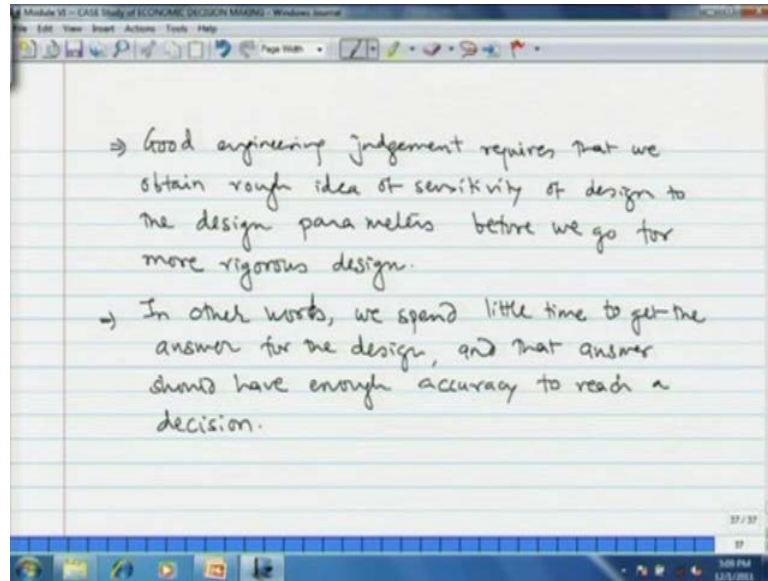 Module VI - CASE Study of ECONOMIC DECISION MAKING - Windows Journal
File Edit View Insert Actions Tools Help
Page Width
⇒ Good engineering judgement requires that we
obtain rough idea of sensitivity of design to
the design parameters before we go for
more rigorous design.
→ In other words, we spend little time to get the
answer for the design, and that answer
should have enough accuracy to reach a
decision.
37 / 37
37
5:09 PM
12/1/2011